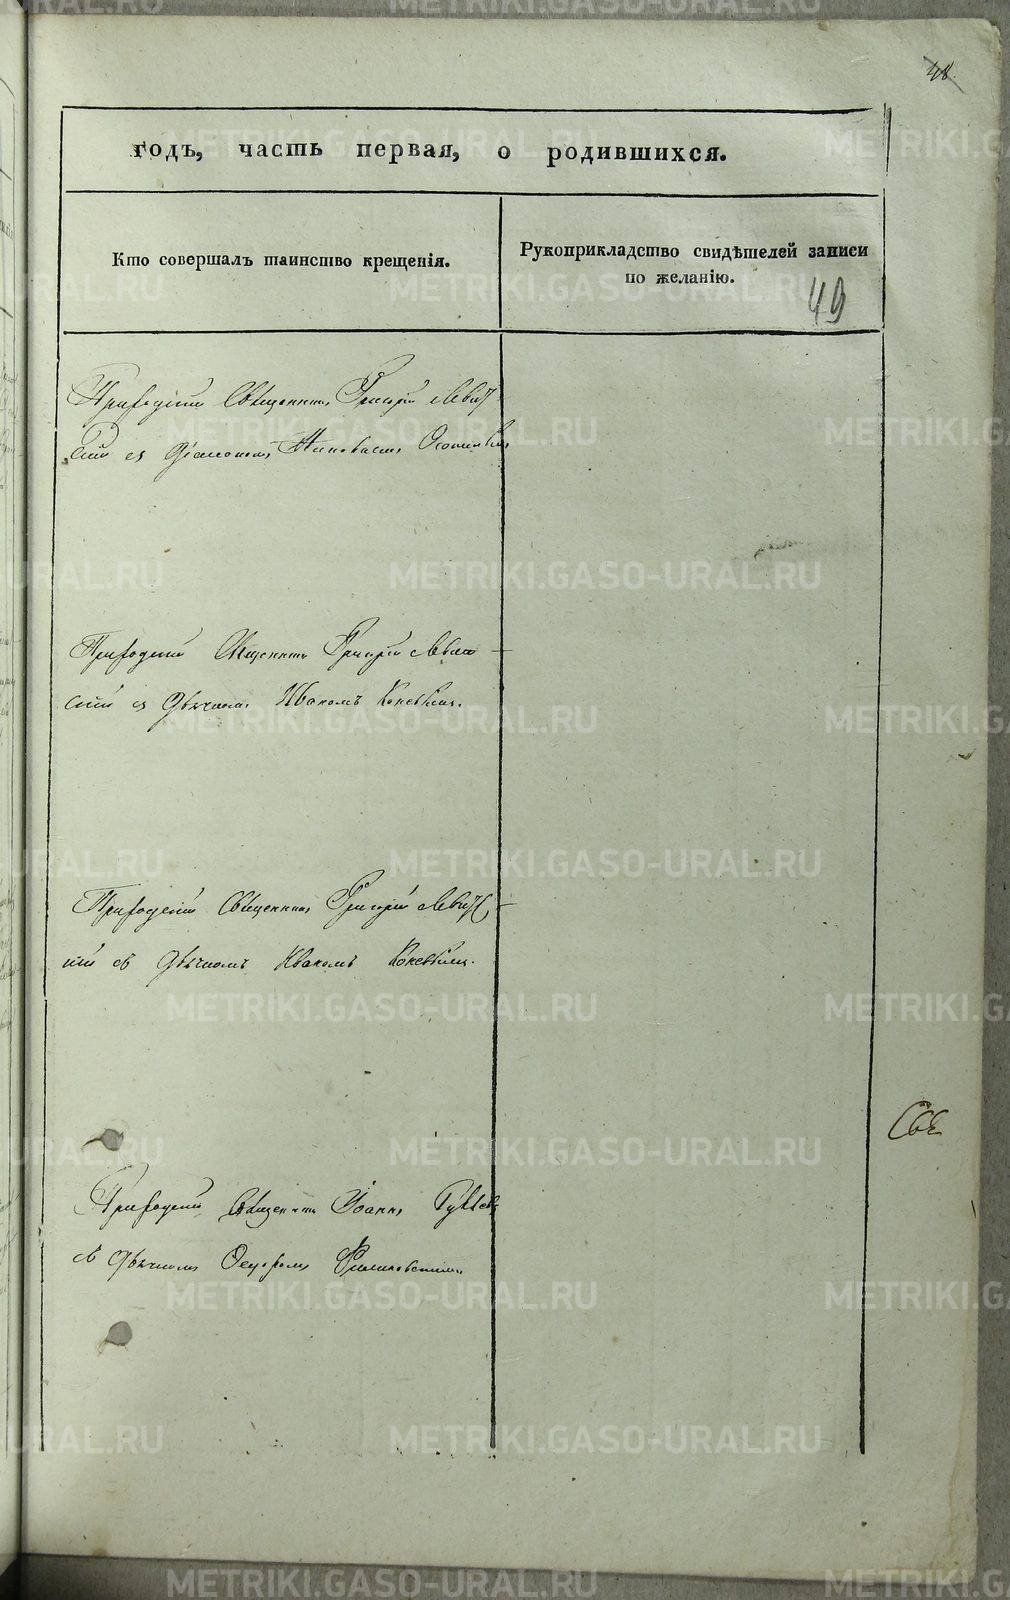 48.
годъ, часть первая, о родившихся.
Кто совершалъ таинство крещенія.
Рукоприкладство свидѣтелей записи
по желанію.
49
Приходскій Священникъ Григорій Левит
скій съ Діакономъ
Приходскій Священникъ Григорій Левит
скій съ Дьячкомъ Иваномъ Коневымъ.
Приходскій Священникъ Григорій Левитс
кій съ Дьячкомъ Иваномъ Коневымъ.
Приходскій Священникъ Іоаннъ
съ Дьячкомъ Ѳедоромъ
METRIKI.GASO-URAL.RU